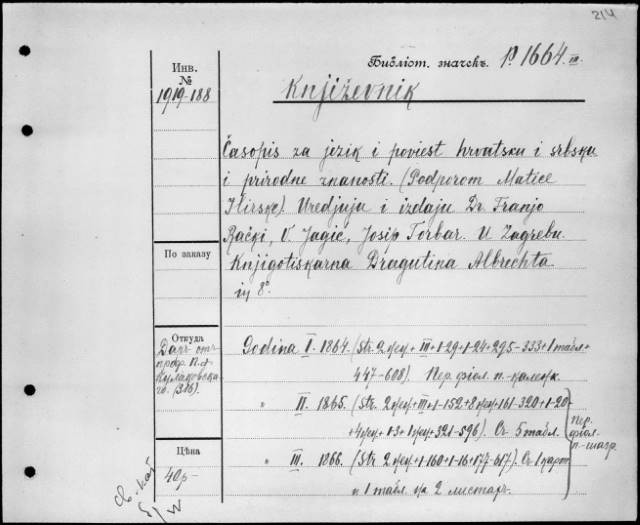 214
Библіот. значекъ. P. 1664. III.
Инв.
№
1919-188
Književnik
Časopis za jezik i poviest hrvatsku i srbsku
i prirodne znanosti. (Podporom Matice
Ilirske). Uredjuju i izdaju Dr. Franjo
Rački, V. Jagić, Josip Torbar. U Zagrebu.
Knjigotiskarna Dragutina Albrechta
in 8º.
По заказу
Откуда
Даръ отъ
проф. П. А.
Кулаковска-
го (316).
Godina I. 1864. (Str. 2 + III + 1-29 + 1-24 + 295-333 + 1 табл. +
447-608). Пер. п.-
" II. 1865. (Str. 2 + III + 1-152 + 8 + 161-320 + 1-20
+ 4 + 1-3 + 1 + 321-596). Съ 5 табл.
Пер.
п.-шагр.
" III. 1866. (Str. 2 + 1-160 + 1-16 + 177-617). Съ 1
и 1 табл. на 2 листахъ.
Цѣна
40 р-